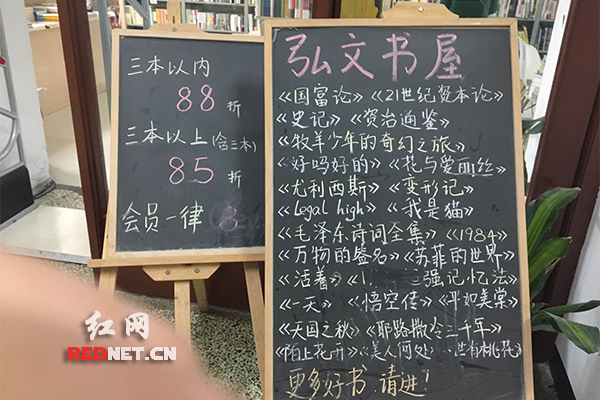 三本以内
88折
三本以上(含三本)
85折
会员一律
弘文书屋
《国富论》《21世纪资本论》
《史记》《资治通鉴》
《牧羊少年的奇幻之旅》
《好吗好的》《托与爱丽丝》
《尤利西斯》《变形记》
《legal high》《我是猫》
《毛泽东诗词全集》《1984》
《万物的签名》《苏菲的世界》
《活着》《 强记忆法》
《一天》《悟空传》《平如美棠》
《天国之秋》《耶路撒冷三千年》
《陌上花开》《美人何处》 桃花》
更多好书,请进!
红网
REDNET.CN